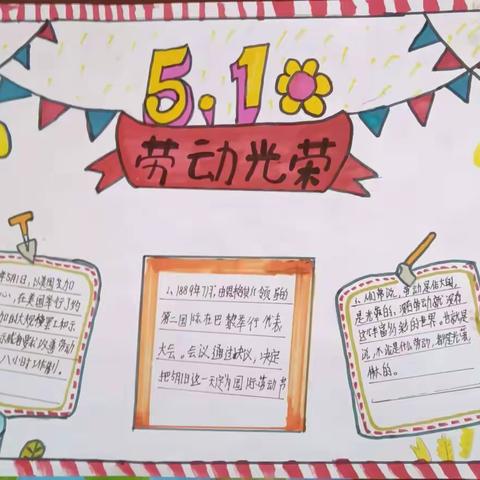 5.1
劳动光荣
年5月1日,以美国芝加
心,在美国举行了约
加的大规模罢工和示
示威者要求改善劳动
八小时工作制。
1、1889年7月,由恩格斯领导的
第二国际在巴黎举行代表
大会。会议通过决议,决定
把5月1日这一天定为国际劳动节
1、人们常说,劳动是伟大的,
是光荣的,没有劳动就没有
这丰富多彩的世界。也就是
说,不论是什么劳动,都是光荣
伟大的。